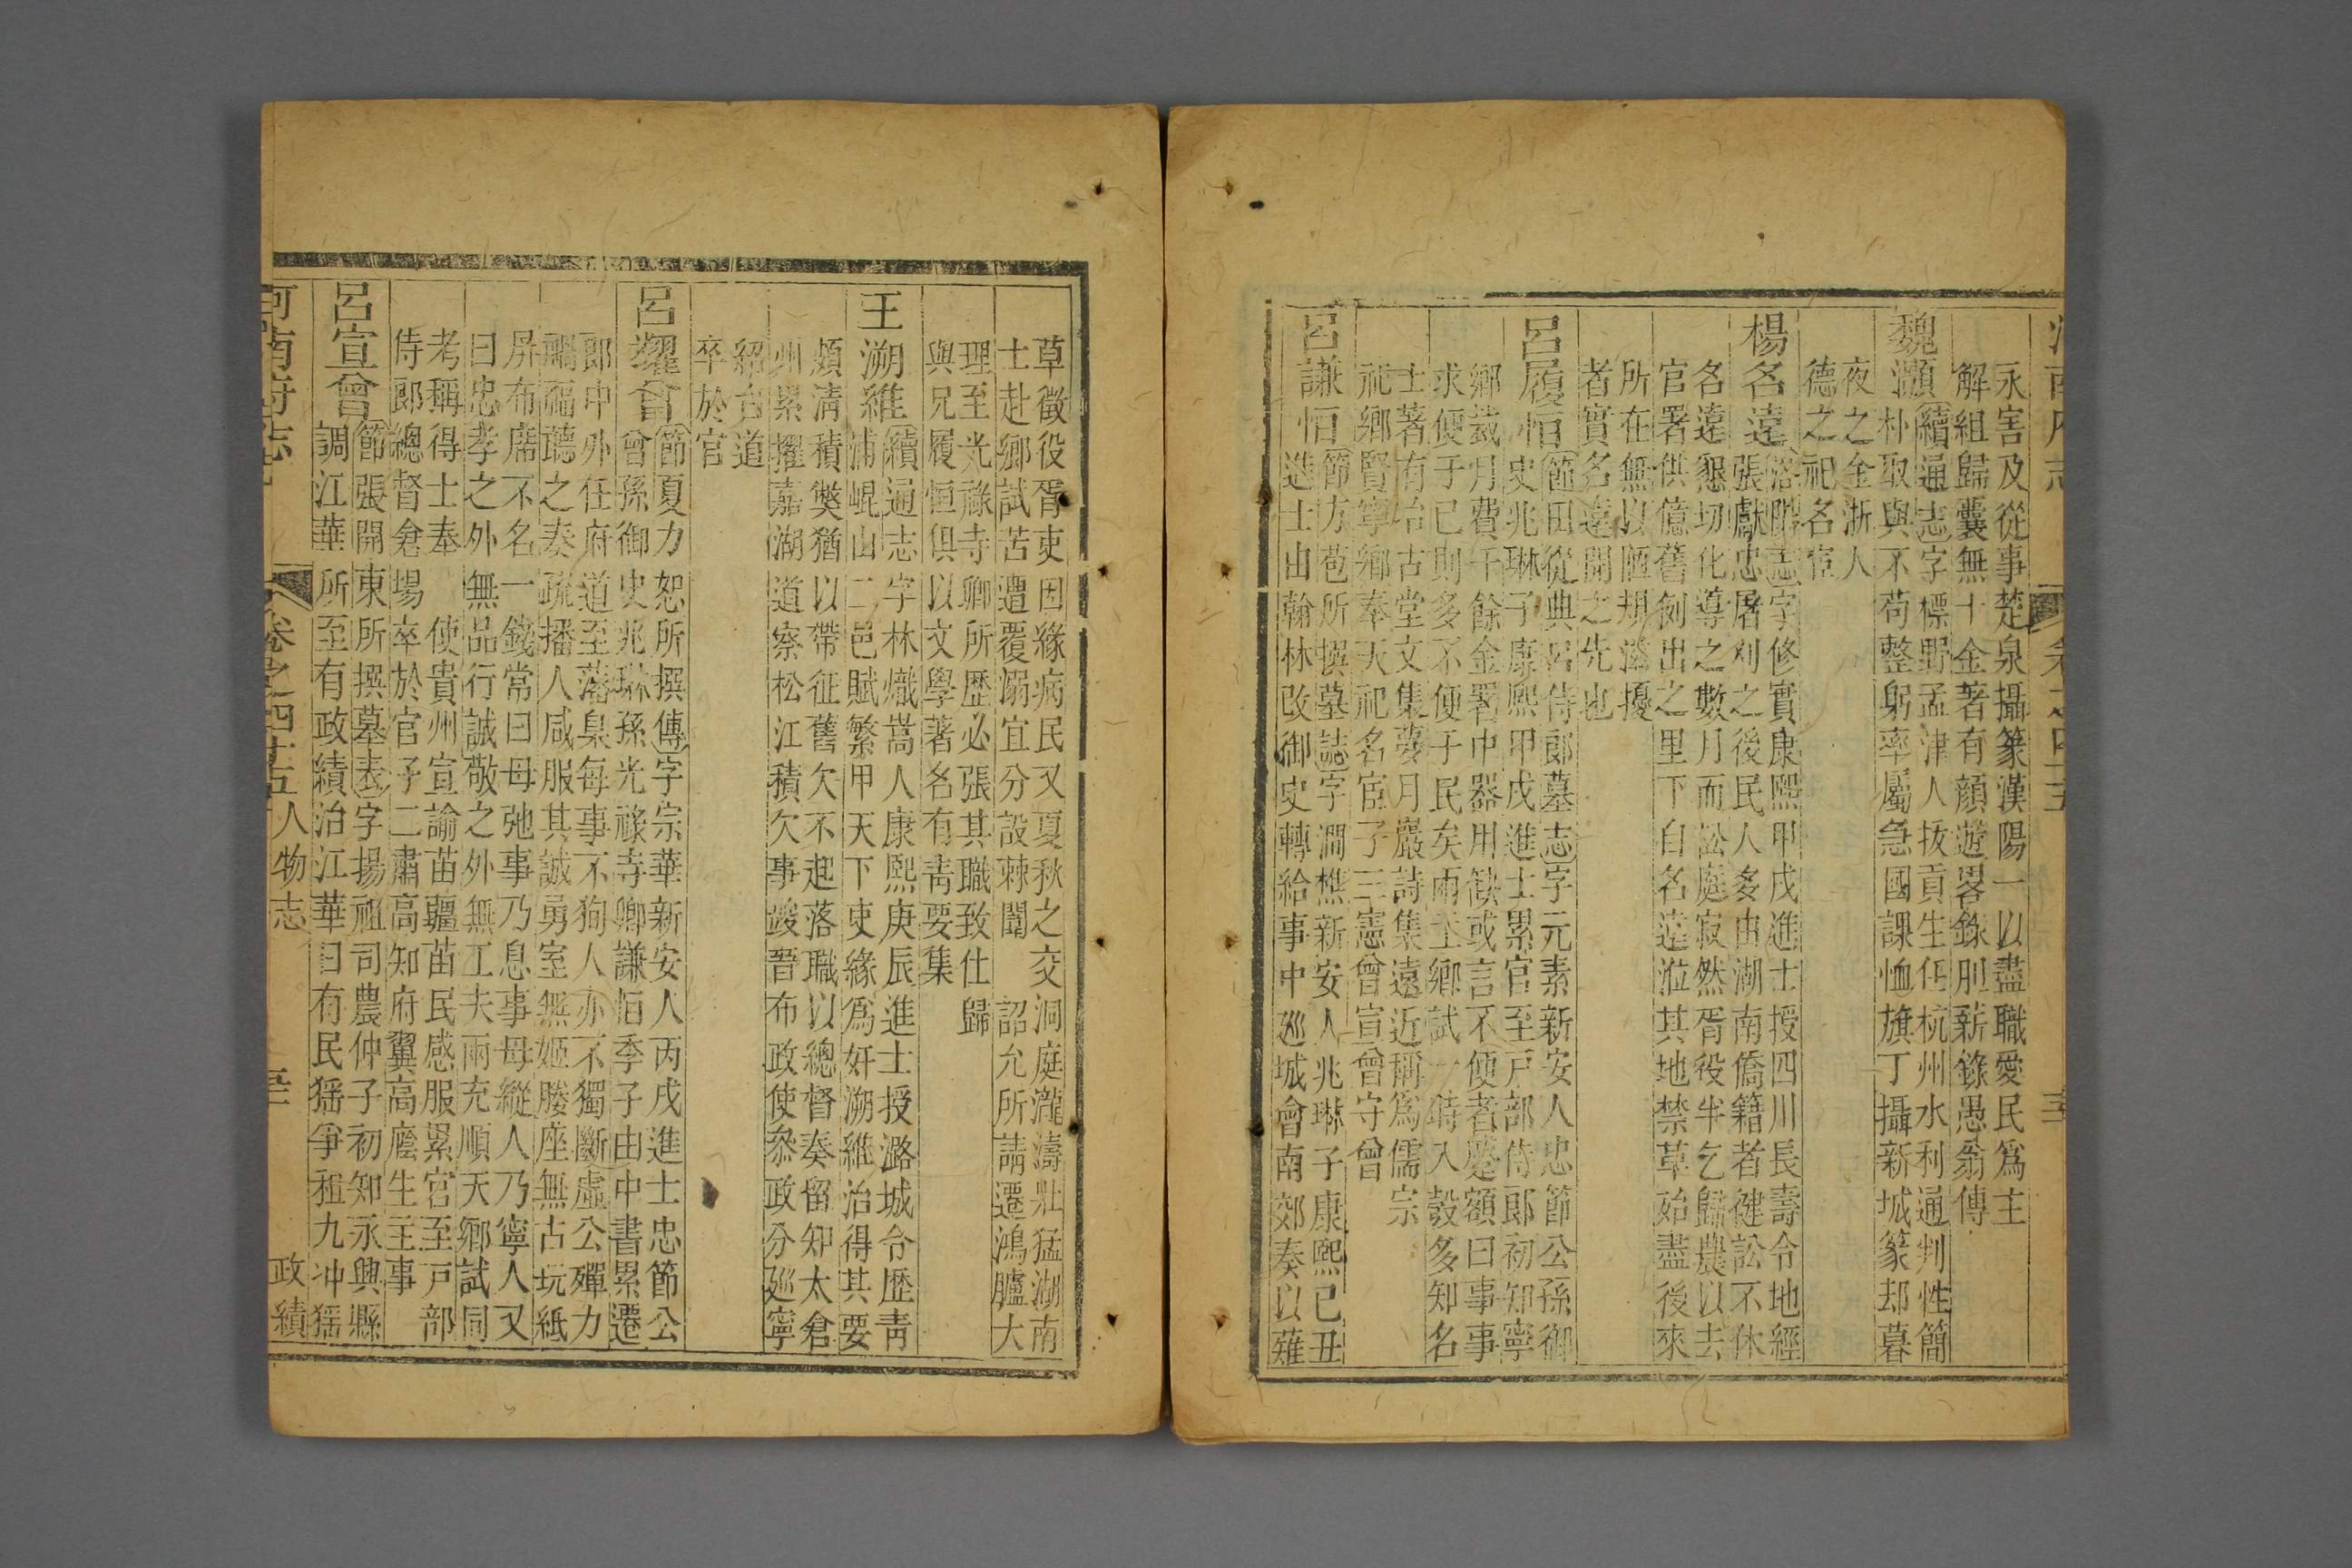 永害及從事楚泉攝篆漢陽一以盡職愛民爲主
解組歸囊無十金著有顔遊畧錄胆薪錄愚翁傳
魏灝續通志字標野孟津人拔貢生任杭州水利通判性簡
朴取與不苟整躬率屬急國課恤旗丁攝新城篆却暮
夜之金浙人
德之祀名宦
楊名遠洛陽志字修實康熙甲戌進士授四川長壽令地經
張獻忠屠刈之後民人多由湖南僑籍者健訟不休
名遠懇切化導之數月而訟庭寂然胥役半乞歸農以去
官署供億舊例出之里下自名遠涖其地禁革殆盡後來
所在無以陋規滋擾
者實名遠開之先也
呂履恒節田從典呂侍郎墓志字元素新安人忠節公孫御
史兆琳子康熙甲戌進士累官至戸部侍郎初知寧
鄉歲月費千餘金署中器用缺或言不便者遷額曰事事
求便于已則多不便于民矣兩主鄉試一時入彀多知名
士著有冶古堂文集夢月巖詩集遠近稱爲儒宗
祀鄉賢寧鄉奉天祀名宦子三憲曾宣曾守曾
呂謙恒節方苞所撰墓誌字澗樵新安人兆琳子康熙己丑
進士由翰林改御史轉給事中廵城會南郊奏以薙
草徵役胥吏因緣病民又夏秋之交洞庭瀧濤壯猛湖南
士赴鄉試苦遭覆溺宜分設棘闈 詔允所請遷鴻臚大
理至光祿寺卿所歴必張其職致仕歸
與兄履恒俱以文學著名有靑要集
王溯維續通志字林熾嵩人康熙庚辰進士授潞城令歴靑
浦崐山二邑賦繁甲天下吏緣爲奸溯維治得其要
頻清積獘猶以帶征舊欠不起落職以總督奏留知太倉
州累擢嘉湖道察松江積欠事竣晉布政使叅政分廵寧
紹台道
卒於官
呂耀曾節夏力恕所撰傳字宗華新安人丙戌進士忠節公
曾孫御史兆琳孫光祿寺卿謙恒季子由中書累遷
郎中外任府道至藩臬每事不狥人亦不獨斷虛公殫力
禰禰聽之奏疏播人咸服其誠勇室無姬媵座無古玩紙
屏布席不名一錢常曰母弛事乃息事母縱人乃寧人又
曰忠孝之外無品行誠敬之外無工夫兩充順天鄉試同
考稱得士奉 使貴州宣諭苗疆苗民感服累官至戸部
侍郎總督倉場卒於官子二肅高知府翼高廕生主事
呂宣曾節張開東所撰墓表字揚祖司農仲子初知永興縣
調江華所至有政績治江華日有民猺爭租九冲猺
河南府志 卷之四十五人物志 政績